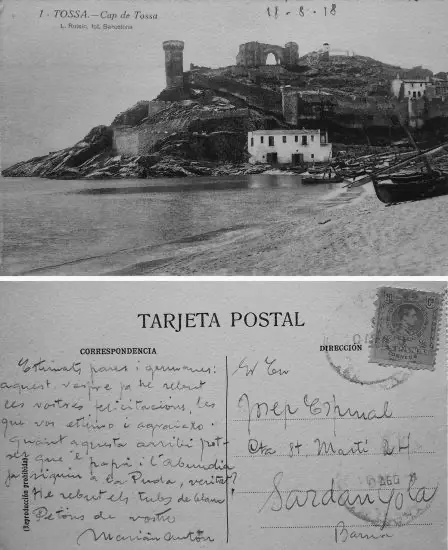 1 - TOSSA. - Cap de Tossa
L. Roisin, fot. Barcelona
18-8-18
TARJETA POSTAL
CORRESPONDENCIA
DIRECCIÓN
Estimats pares i germanes:
aquest vespre ja he rebut
les vostres felicitacions, les
que vos estimo i agraeixo.
Quant aquesta arribi pot-
ser que'l papá i l'Abundia
ja siguin a La Puda, veritat?
He rebut els Tubs de blanc
Petons de vostre
Marián Antón
(Reproducción prohibida)
Sr En
Josep Espinal
Cta St. Martí 24
Sardanyola
Barna
CORREOS